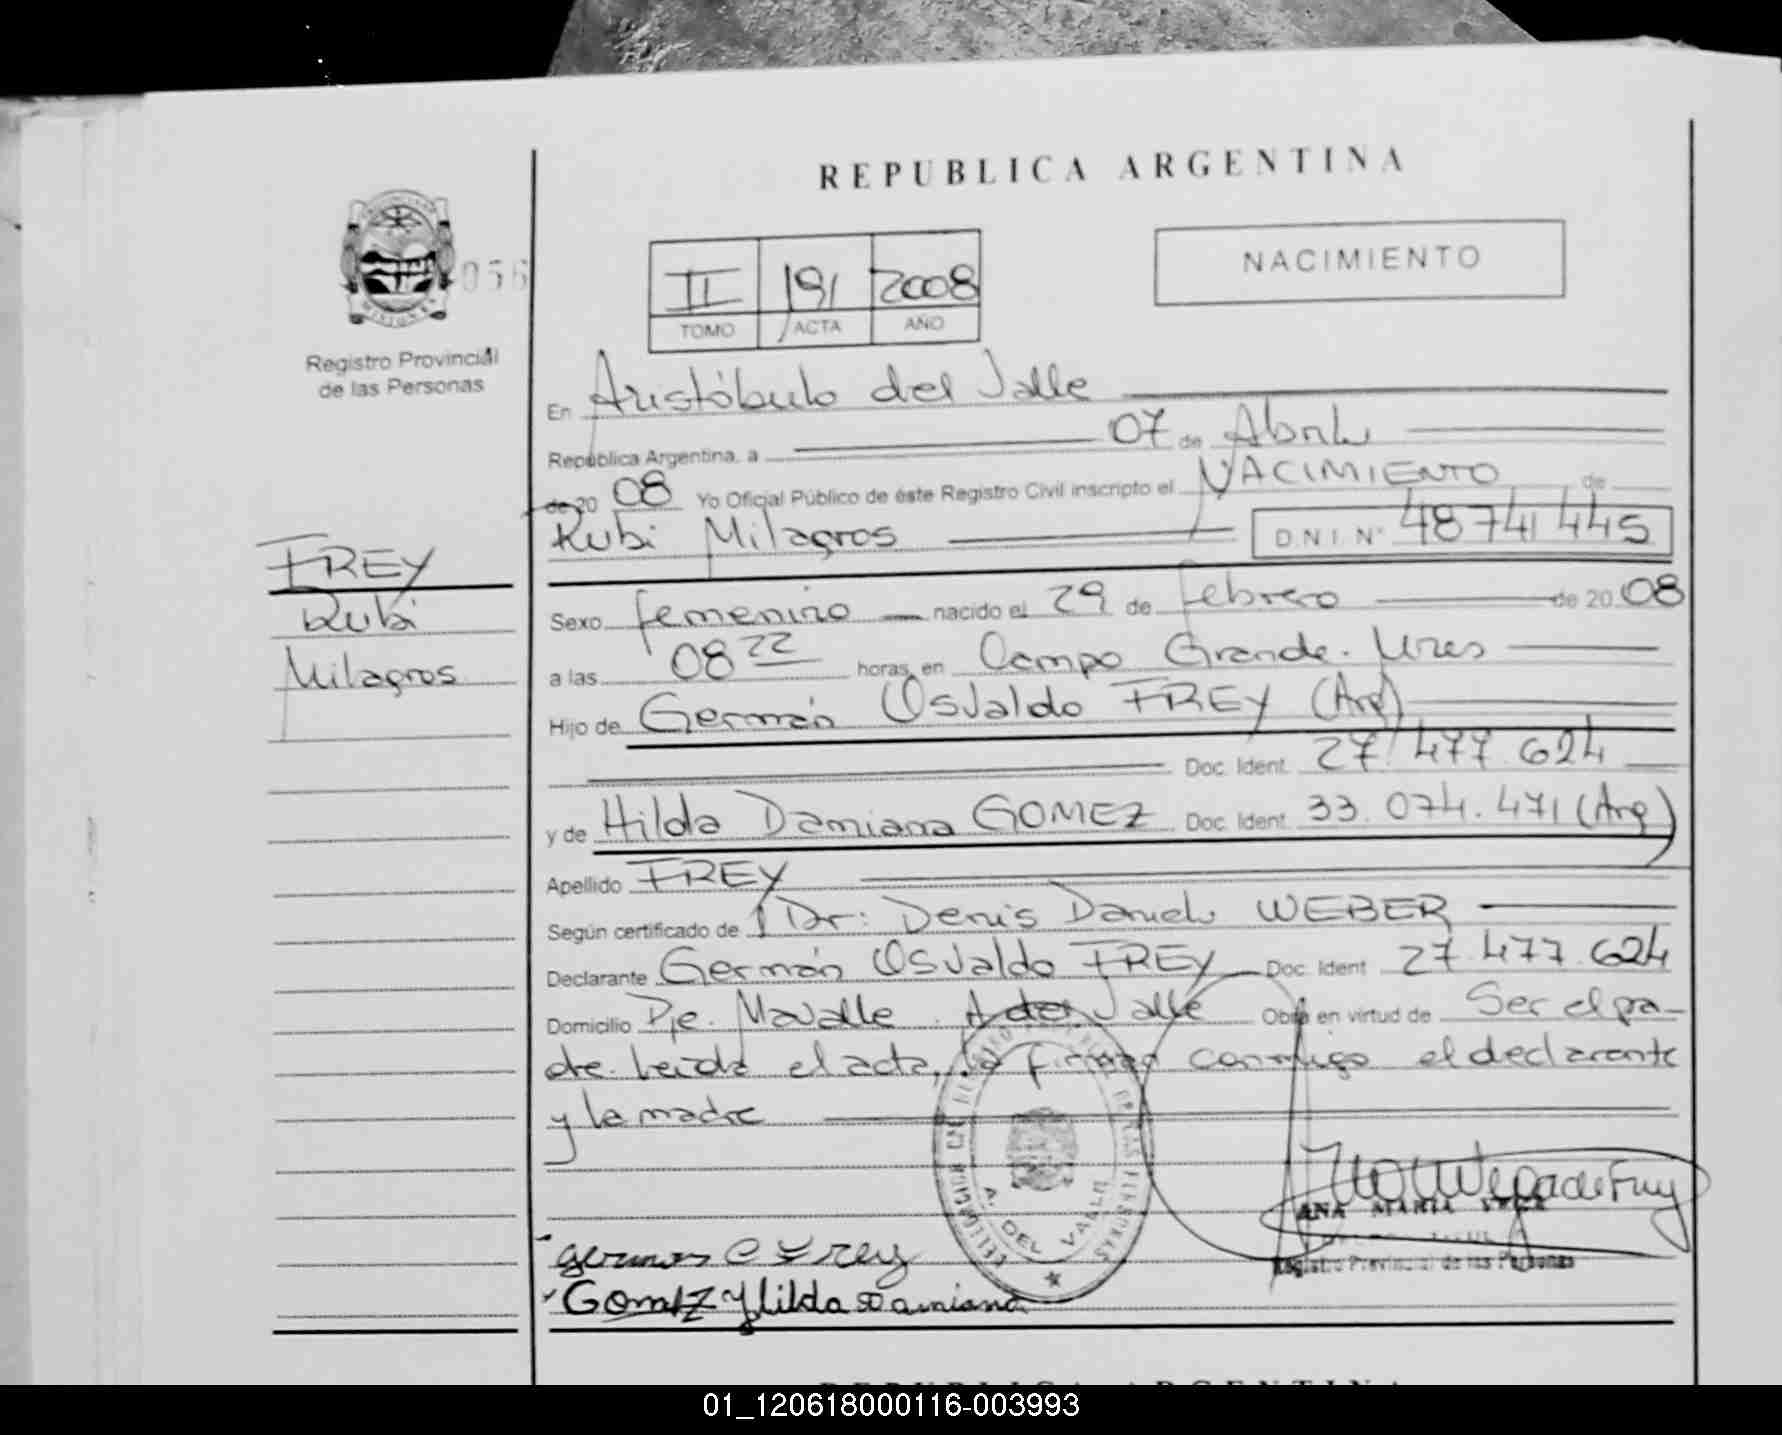 REPUBLICA ARGENTINA
NACIMIENTO
056
MISIONES
Registro Provincial
de las Personas
II 191 2008
TOMO ACTA AÑO
En Aristóbulo del Valle
República Argentina, a 07 de Abril
de 20 08 Yo Oficial Público de éste Registro Civil inscripto el NACIMIENTO de
Rubi Milagros D.N.I. Nº 48741445
FREY
Rubi
Milagros
Sexo femenino nacido el 29 de febrero de 20 08
a las 08 22 horas, en Campo Grande. Mnes
Hijo de Germán Osvaldo FREY (Arg)
Doc. Ident. 27.477.624
y de Hilda Damiana GOMEZ Doc. Ident. 33.074.471 (Arg)
Apellido FREY
Según certificado de Dr: Denis Daniel WEBER
Declarante Germán Osvaldo FREY Doc. Ident 27.477.624
Domicilio Pje. Mavalle. A del Valle Obra en virtud de Ser el pa-
dre. Leída el acta, la firman conmigo el declarante
y la madre
A. DEL VALLE
ANA MARIA
Registro Provincial de las Personas
German O Frey
Gomez Hilda Damiana
REPUBLICA ARGENTINA
01_120618000116-003993